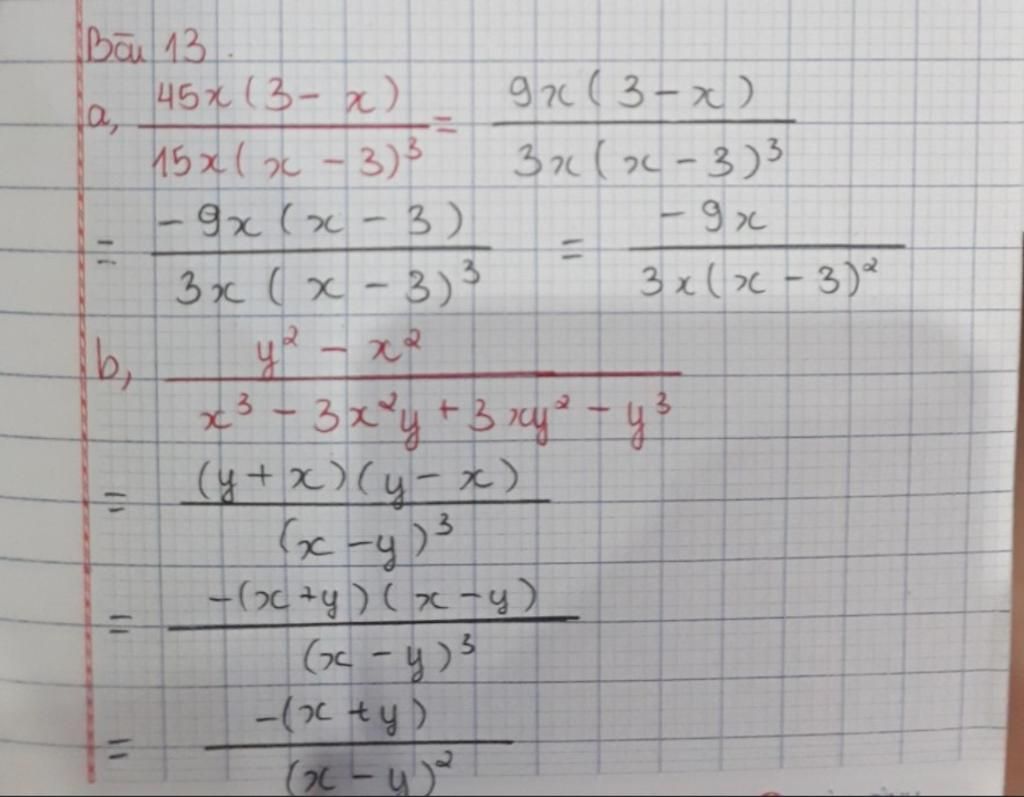 Bài 13.
a, 45x(3 - x) / 15x(x - 3)³ = 9x(3 - x) / 3x(x - 3)³
= -9x(x - 3) / 3x(x - 3)³ = -9x / 3x(x - 3)²
b, y² - x² / x³ - 3x²y + 3xy² - y³
= (y + x)(y - x) / (x - y)³
= -(x + y)(x - y) / (x - y)³
= -(x + y) / (x - y)²